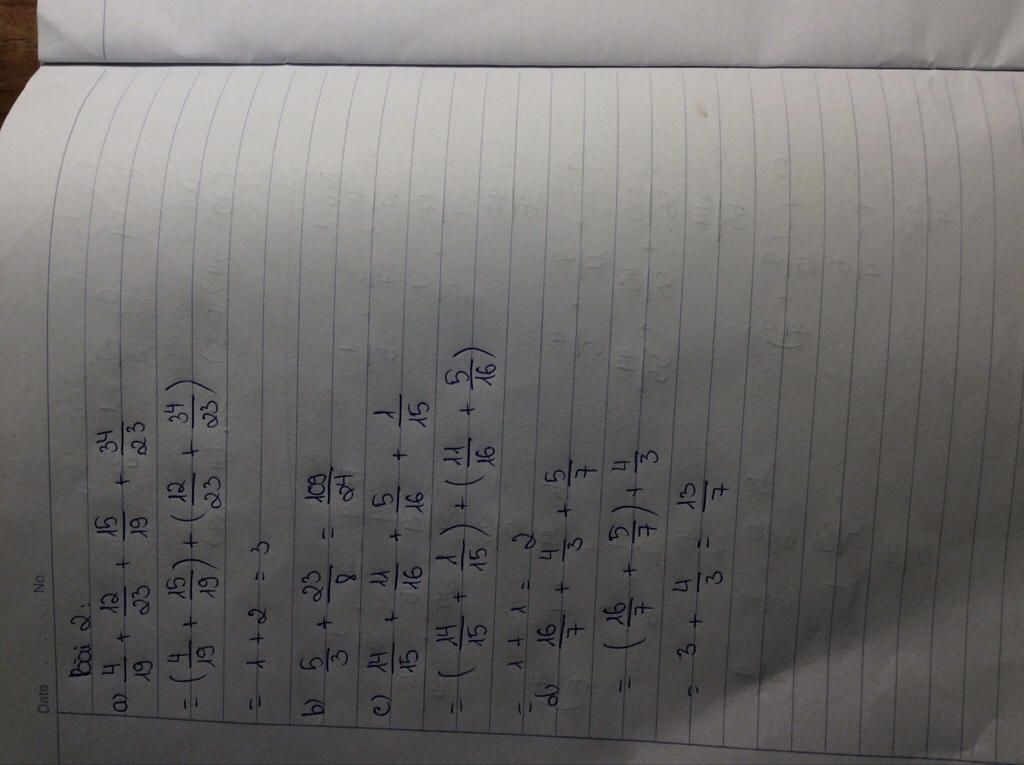 Date No.
Bài 2:
a) 4/19 + 12/23 + 15/19 + 34/23
= (4/19 + 15/19) + (12/23 + 34/23)
= 1 + 2 = 3
b) 5/3 + 23/8 = 109/24
c) 14/15 + 11/16 + 5/16 + 1/15
= (14/15 + 1/15) + (11/16 + 5/16)
= 1 + 1 = 2
d) 16/7 + 4/3 + 5/7
= (16/7 + 5/7) + 4/3
= 3 + 4/3 = 13/7